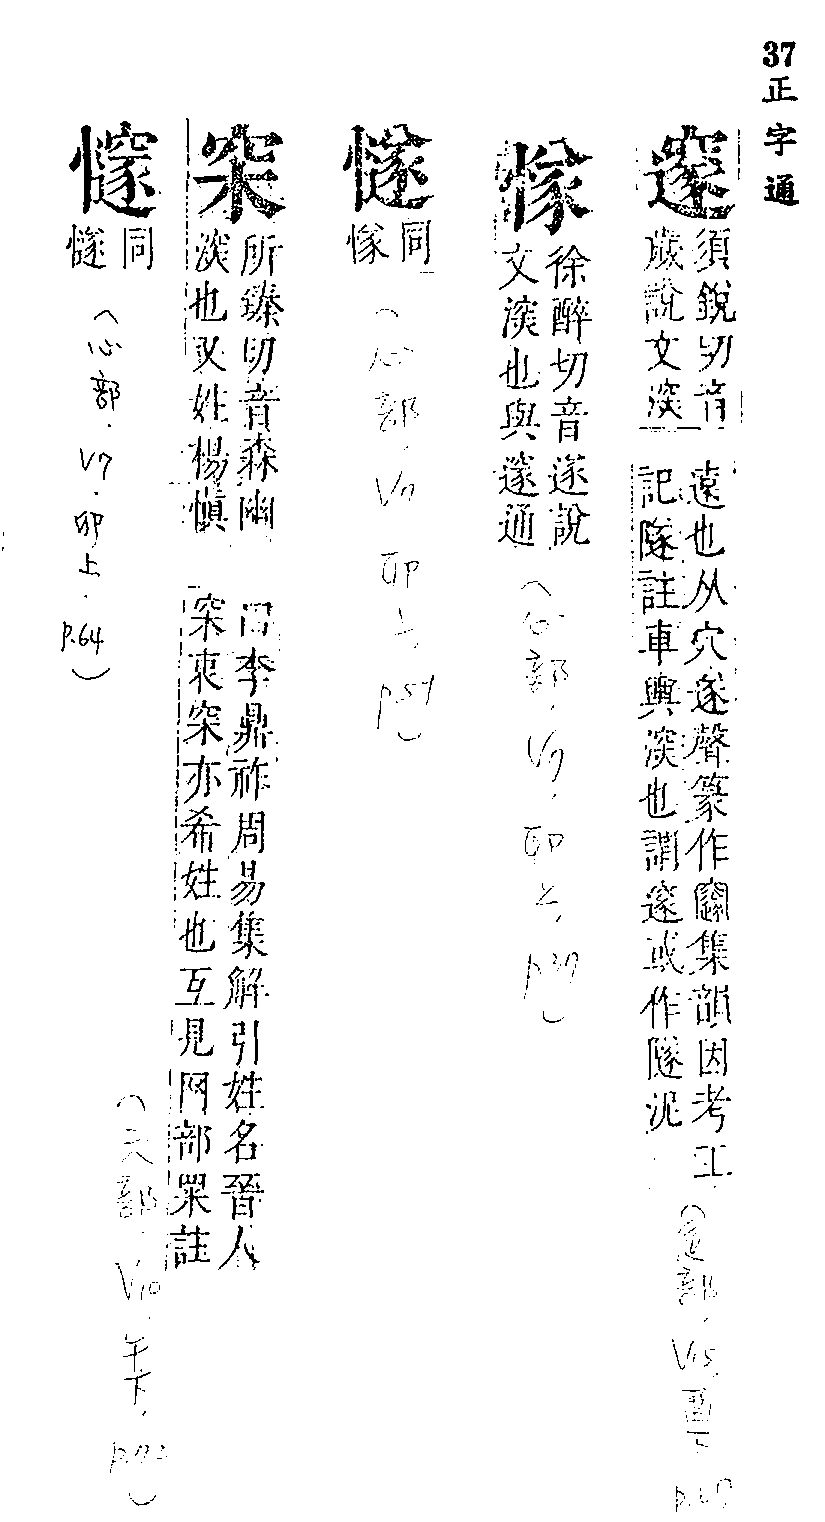 37 正字通
邃
須銳切音
歲說文深
遠也从穴遂聲篆作集韻因考工
記隧註車輿深也謂邃或作隧泥
(辵部．V15．酉下
㥞
徐醉切音遂說
文深也與邃通
(心部．V7．卯上．p.39)
同
㥞
(心部．V7 卯上．p.59)
穼
所臻切音森幽
深也又姓楊慎
曰李鼎祚周易集解引姓名晉人
穼衷穼亦希姓也互見网部罙註
部．V10．午下．
同
(心部．V7．卯上．p.64)